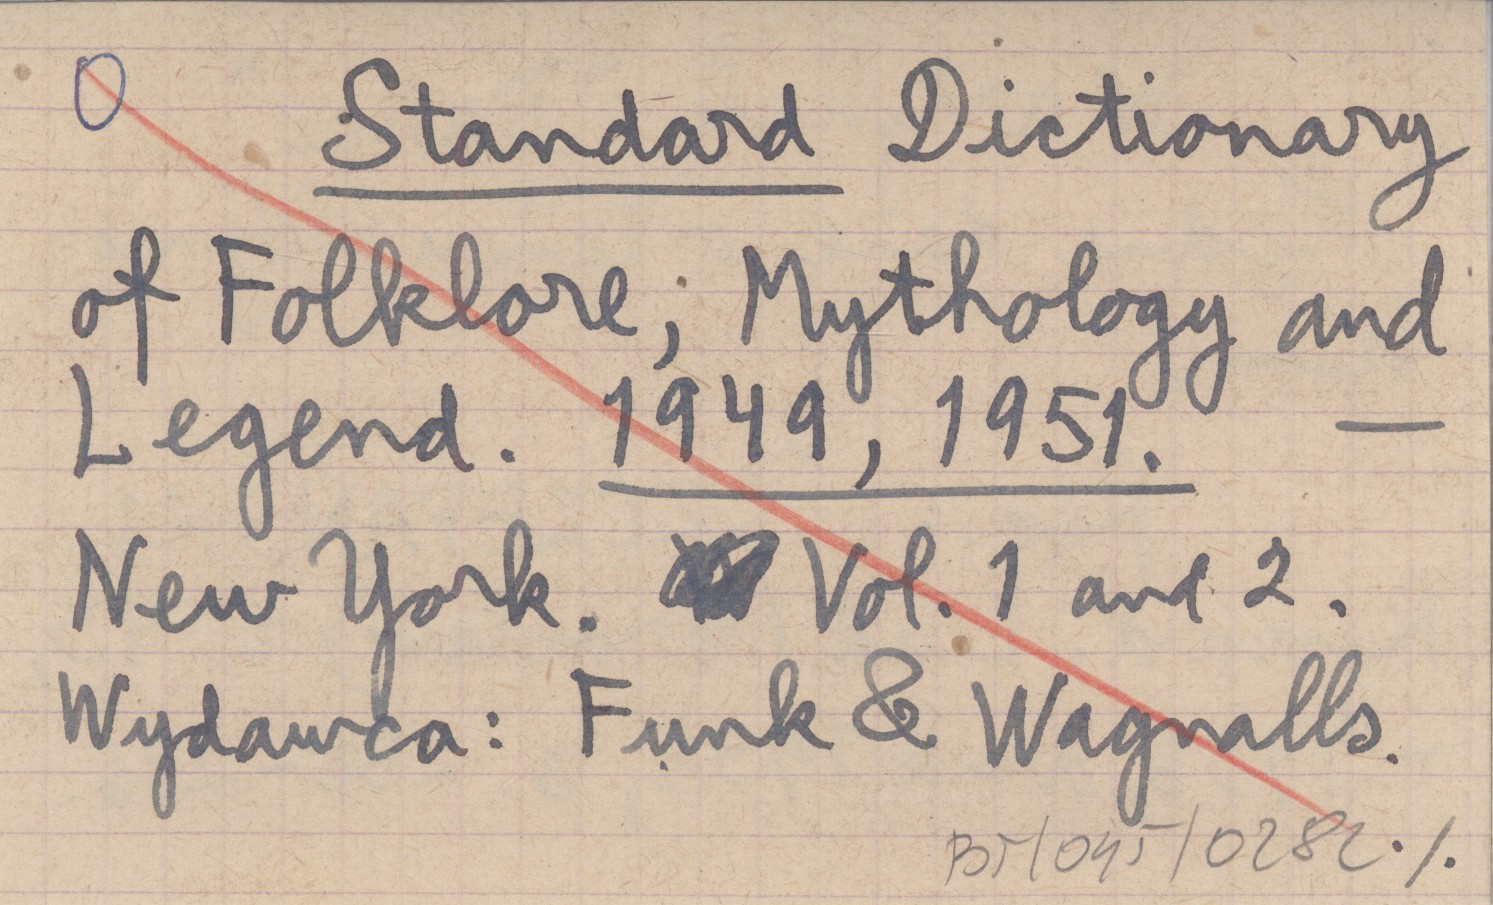 0 Standard Dictionary
of Folklore, Mythology and
Legend. 1949, 1951. —
New York. Vol. 1 and 2.
Wydawca: Funk & Wagnalls.
BT/045/0282 ./.